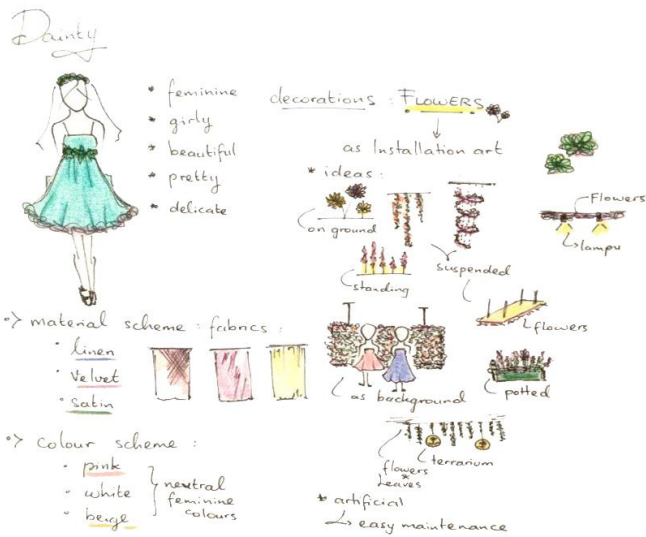 Dainty
* feminine
* girly
* beautiful
* pretty
* delicate
decorations : FLOWERS
as Installation art
* ideas :
on ground
suspended
standing
Flowers
lampu
flowers
as background
potted
flowers
*
leaves
terrarium
* artificial
↳ easy maintenance
•> material scheme : fabrics :
• linen
• velvet
• satin
•> colour scheme :
• pink
• white
• beige
neutral
feminine
colours